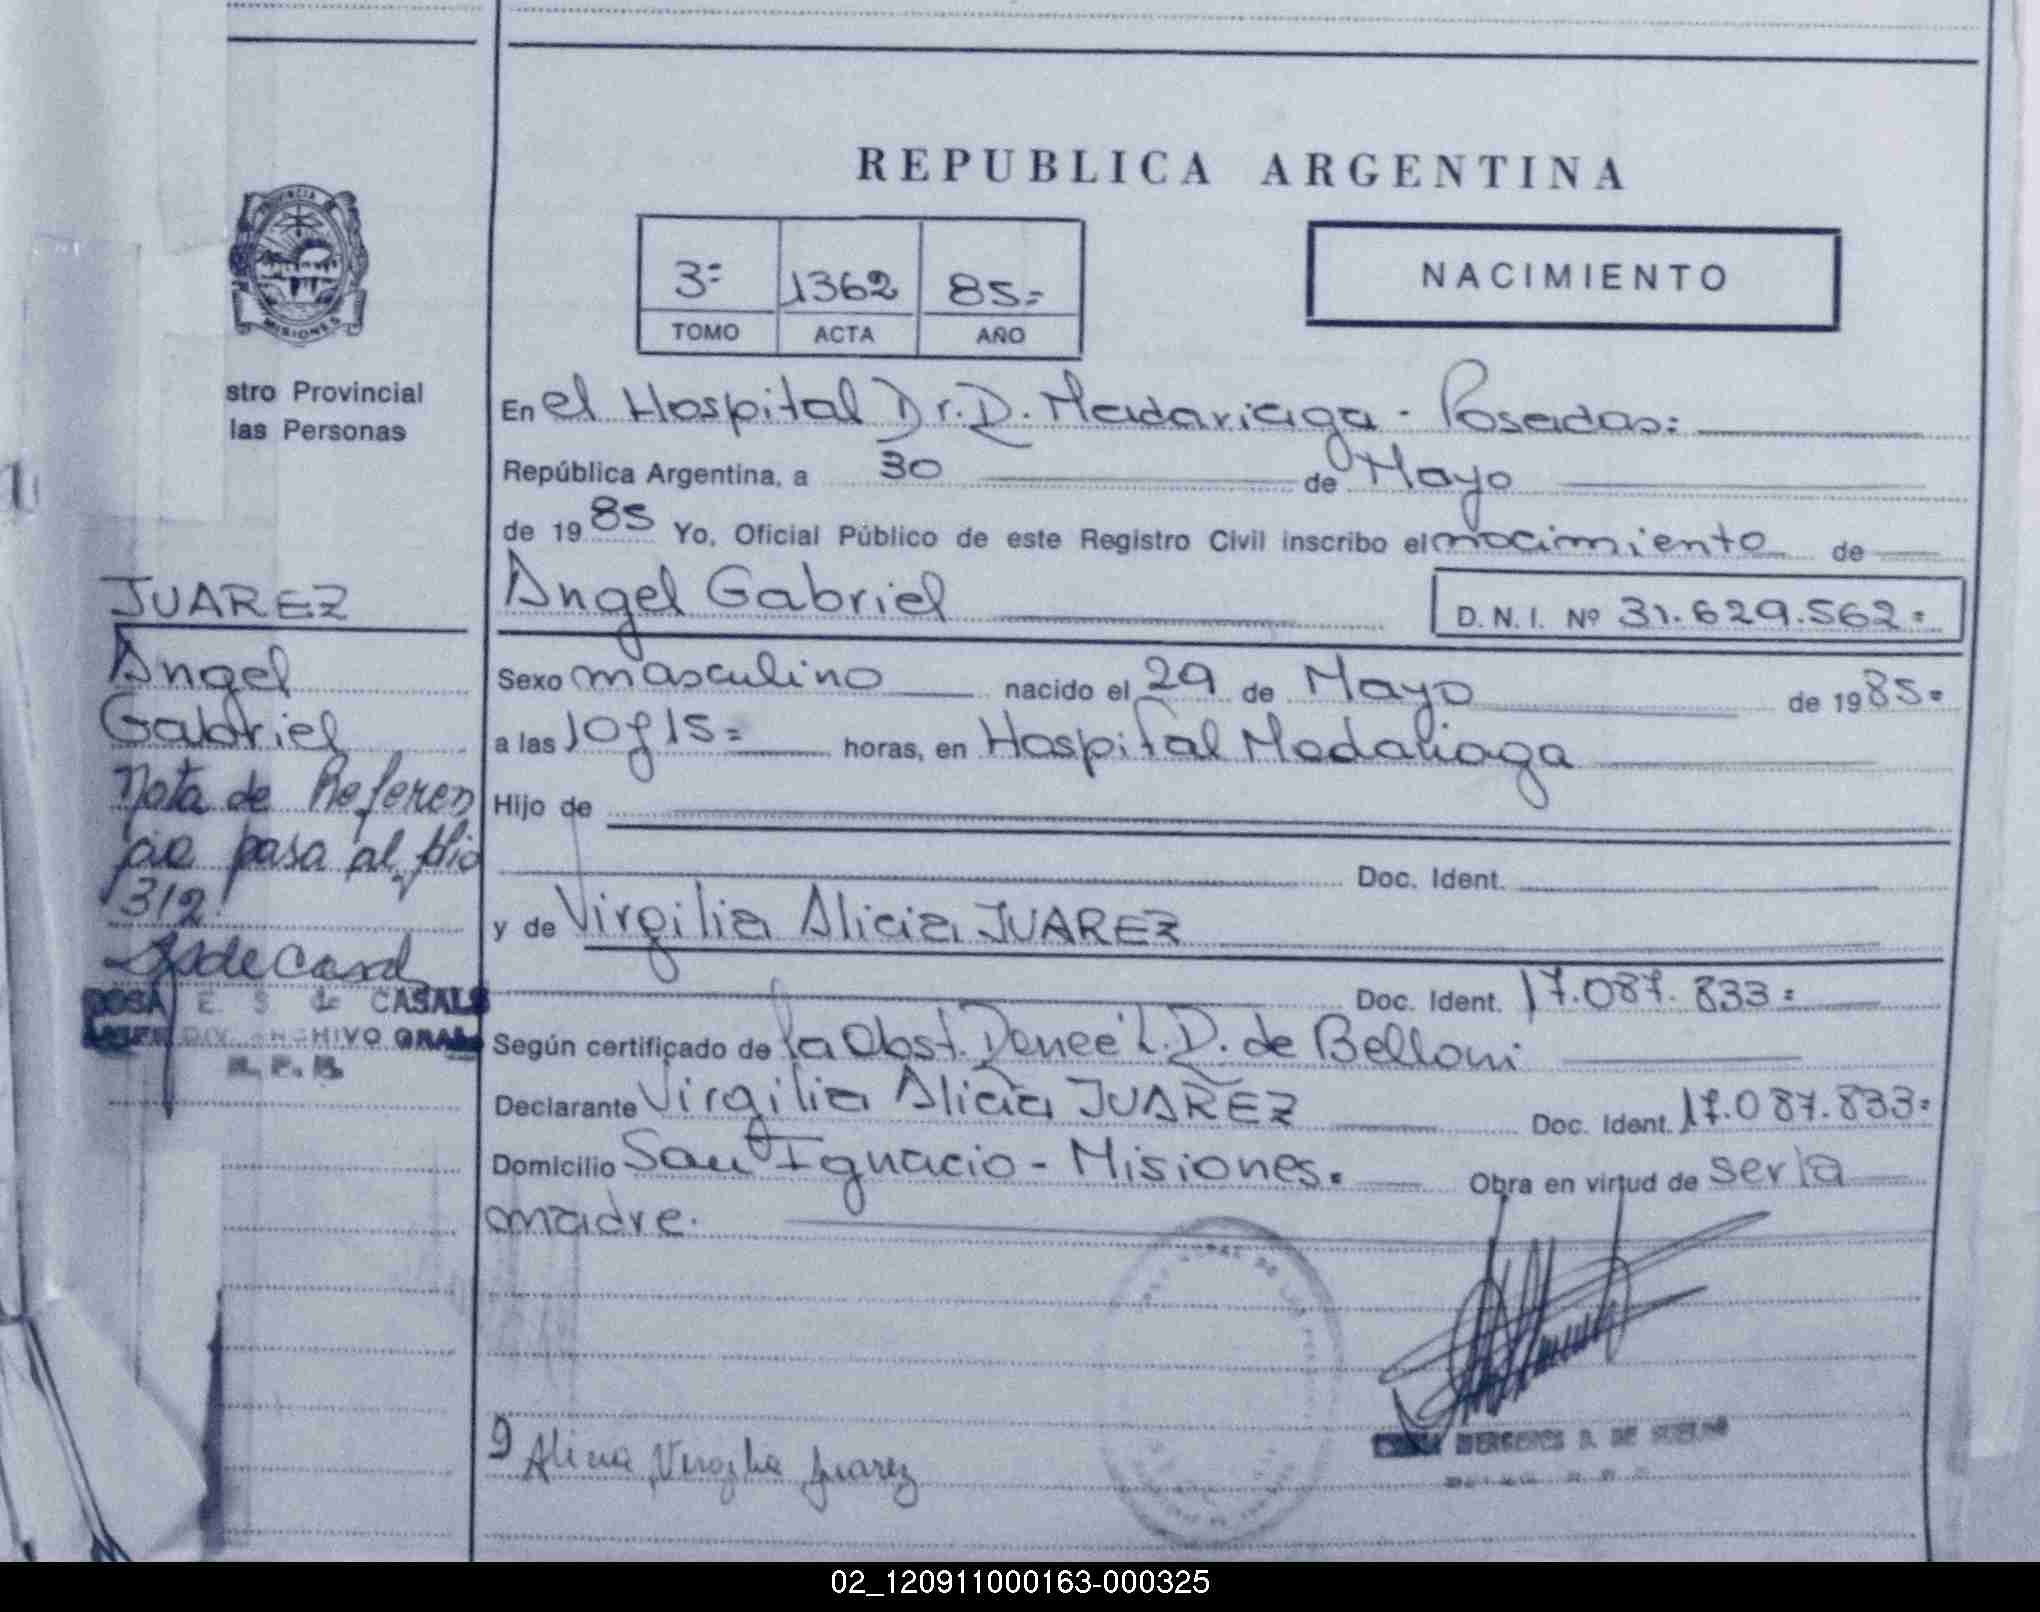 REPUBLICA ARGENTINA
3= 1362 85=
TOMO ACTA AÑO
NACIMIENTO
PROVINCIA
MISIONES
stro Provincial
las Personas
JUAREZ
Angel
Gabriel
Nota de Referen
cia pasa al flio
312
E. S. de CASALS
DIV. ARCHIVO GRAL
R. P. P.
En el Hospital Dr. R. Madariaga - Posadas:
República Argentina, a 30 de Mayo
de 1985 Yo, Oficial Público de este Registro Civil inscribo el nacimiento de
Angel Gabriel D.N.I. Nº 31.629.562=
Sexo masculino nacido el 29 de Mayo de 1985=
a las 10 y 15= horas, en Hospital Madariaga
Hijo de
Doc. Ident.
y de Virgilia Alicia JUAREZ
Doc. Ident. 17.087.833=
Según certificado de la Obst. L. D. de Belloni
Declarante Virgilia Alicia JUAREZ Doc. Ident. 17.087.833=
Domicilio San Ignacio - Misiones= Obra en virtud de ser la
madre.
DE LAS
Alicia Virgilia Juarez
02_120911000163-000325